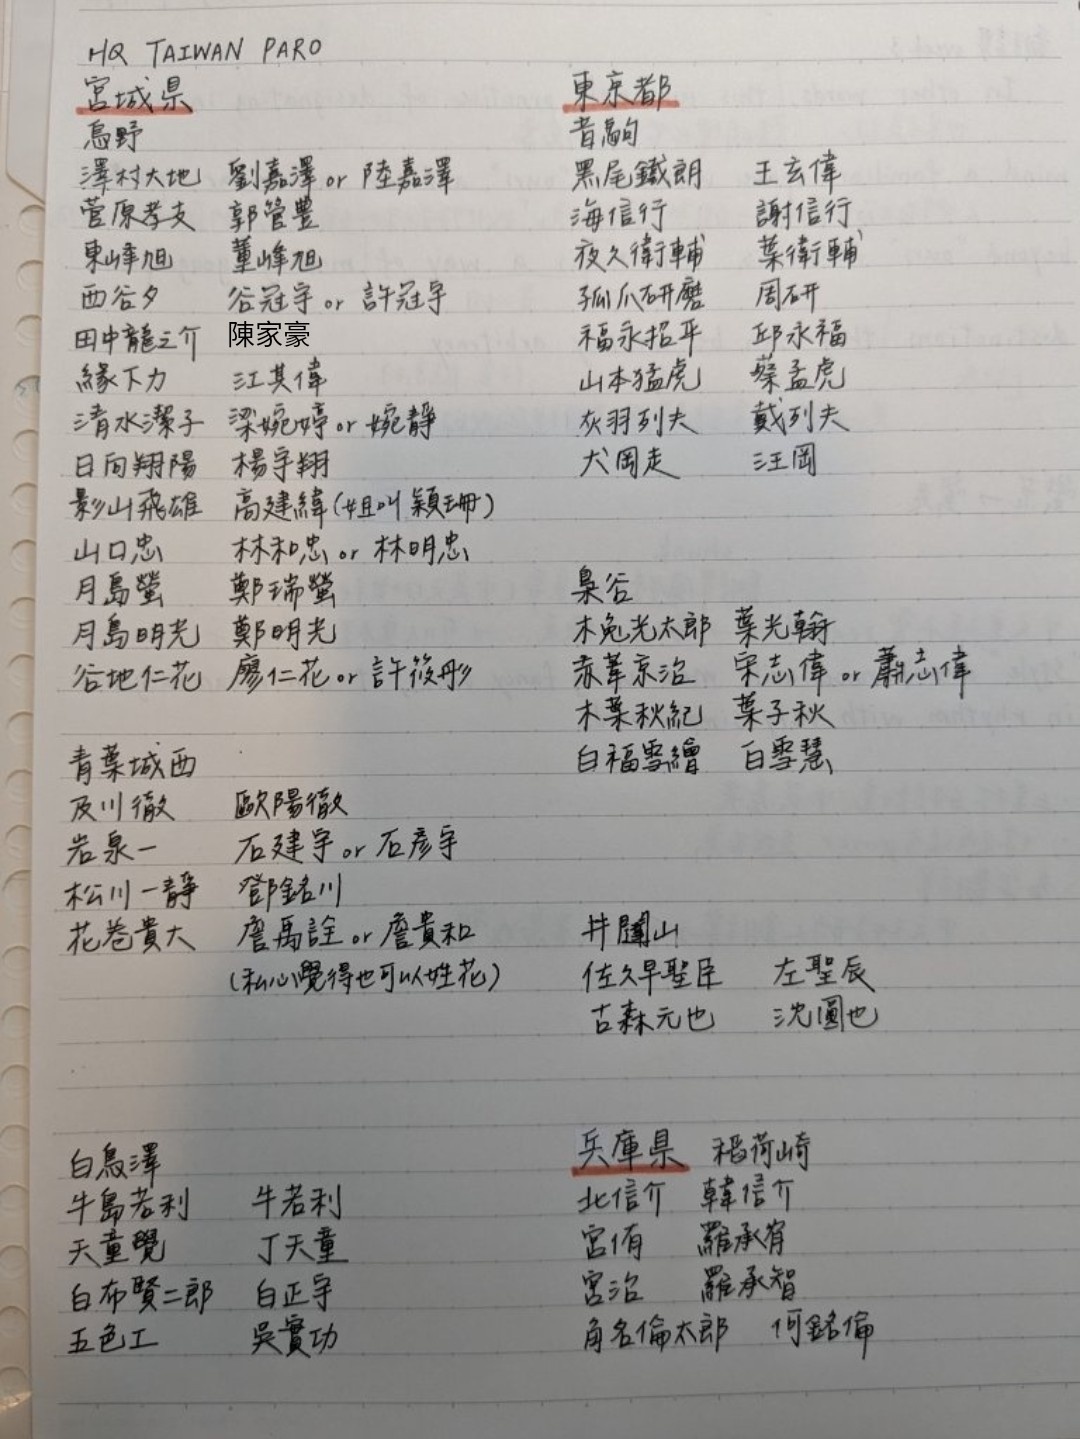 HQ TAIWAN PARO
宮城県
烏野
澤村大地 劉嘉澤 or 陸嘉澤
菅原孝支 郭管豊
東峰旭 董峰旭
西谷夕 谷冠宇 or 許冠宇
田中龍之介 陳家豪
緣下力 江其偉
清水潔子 梁婉婷 or 婉靜
日向翔陽 楊宇翔
影山飛雄 高建緯(姐叫穎珊)
山口忠 林和忠 or 林明忠
月島螢 鄭瑞螢
月島明光 鄭明光
谷地仁花 廖仁花 or 許筱彤
青葉城西
及川徹 歐陽徹
岩泉一 石建宇 or 石彥宇
松川一靜 鄧銘川
花卷貴大 詹禹詮 or 詹貴和
(私心覺得也可以姓花)
白鳥澤
牛島若利 牛若利
天童覺 丁天童
白布賢二郎 白正宇
五色工 吳實功
東京都
音駒
黑尾鐵朗 王玄偉
海信行 謝信行
夜久衛輔 葉衛輔
孤爪研磨 周研
福永招平 邱永福
山本猛虎 蔡孟虎
灰羽列夫 戴列夫
犬岡走 汪岡
梟谷
木兔光太郎 葉光翰
赤葦京治 宋志偉 or 蕭志偉
木葉秋紀 葉子秋
白福雪繪 白雪慧
井闥山
佐久早聖臣 左聖辰
古森元也 沈圓也
兵庫県 稻荷崎
北信介 韓信介
宮侑 羅承宥
宮治 羅承智
角名倫太郎 何銘倫